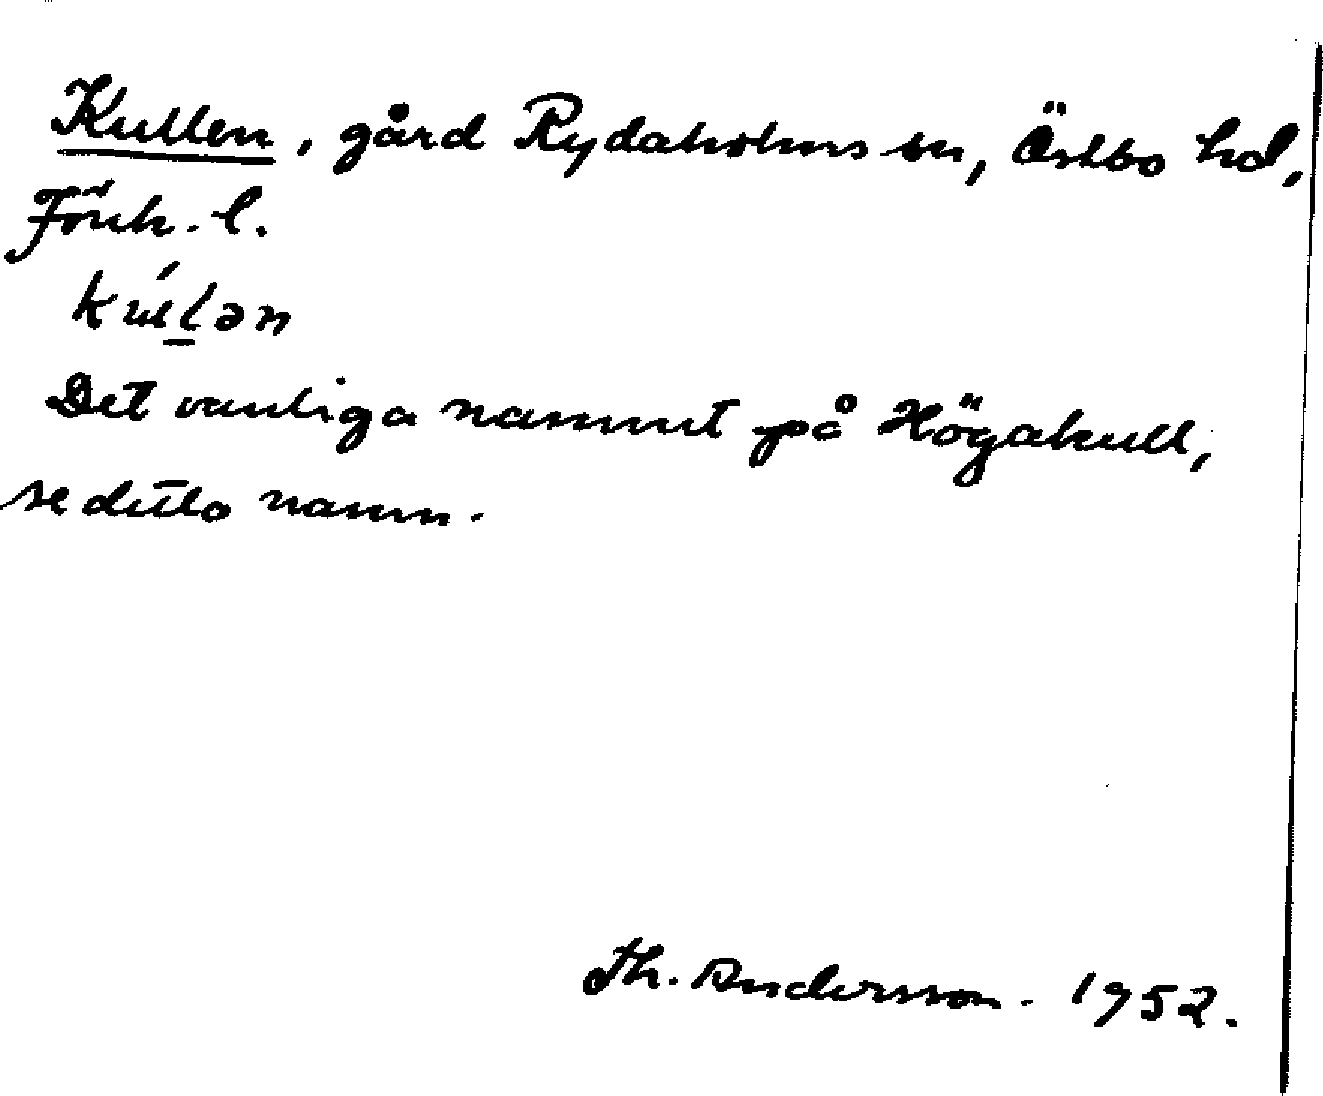 Kullen, gård Rydaholms sn, Östbo hd,
Jönk. l.
kúl̲ən
Det vanliga namnet på Högakull,
se detto namn.
Th. Andersson. 1952.